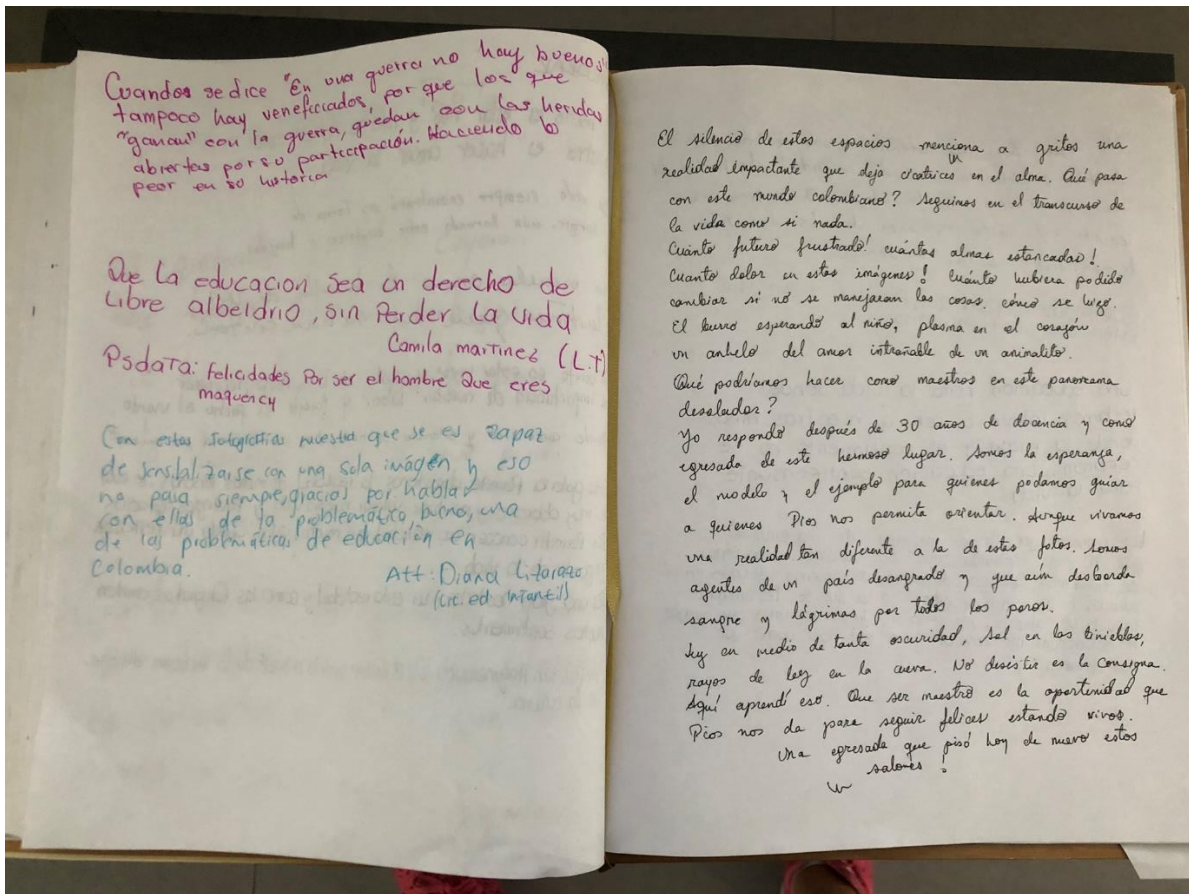 Cuandos se dice "En una guerra no hay buenos"
tampoco hay veneficiados, por que los que
"ganan" con la guerra, quedan con las heridas
abiertas por su participación. Haciendo lo
peor en su historia
Que La educacion sea un derecho de
Libre albeldrio, sin Perder La vida
Camila martinez (L.T)
PsdaTa: Felicidades Por ser el hombre Que eres
maquency
Con estas fotografias muestra que se es zapaz
de sensibilizarse con una sola imágen y eso
no pasa siempre, gracias por hablar
con ellas de la problemático, bueno, una
de las problemáticas de educación en
Colombia.
Att: Diana Litarazo
(Lic. ed infantil)
El silencio de estos espacios menciona a gritos una
realidad impactante que deja cicatrices en el alma. Qué pasa
con este mundo colombiano? Seguimos en el transcurso de
la vida como si nada.
Cuanto futuro frustrado! cuántas almas estancadas!
Cuanto dolor en estas imágenes! Cuánto hubiera podido
cambiar si no se manejaran las cosas, cómo se hizo.
El burro esperando al niño, plasma en el corazón
un anhelo del amor intrañable de un animalito.
Qué podríamos hacer como maestros en este panorama
desolador?
Yo respondo después de 30 años de docencia y como
egresada de este hermoso lugar. Somos la esperanza,
el modelo y el ejemplo para quienes podamos guiar
a quienes Dios nos permita orientar. Aunque vivamos
una realidad tan diferente a la de estas fotos. Somos
agentes de un país desangrado y que aún desborda
sangre y lágrimas por todos los poros.
en medio de tanta oscuridad, Sal en las tinieblas,
rayos de en la cueva. No desistir es la consigna.
Aquí aprendí eso. Que ser maestro es la oportunidad que
Dios nos da para seguir felices estando vivos.
Una egresada que pisó hoy de nuevo estos
salones!